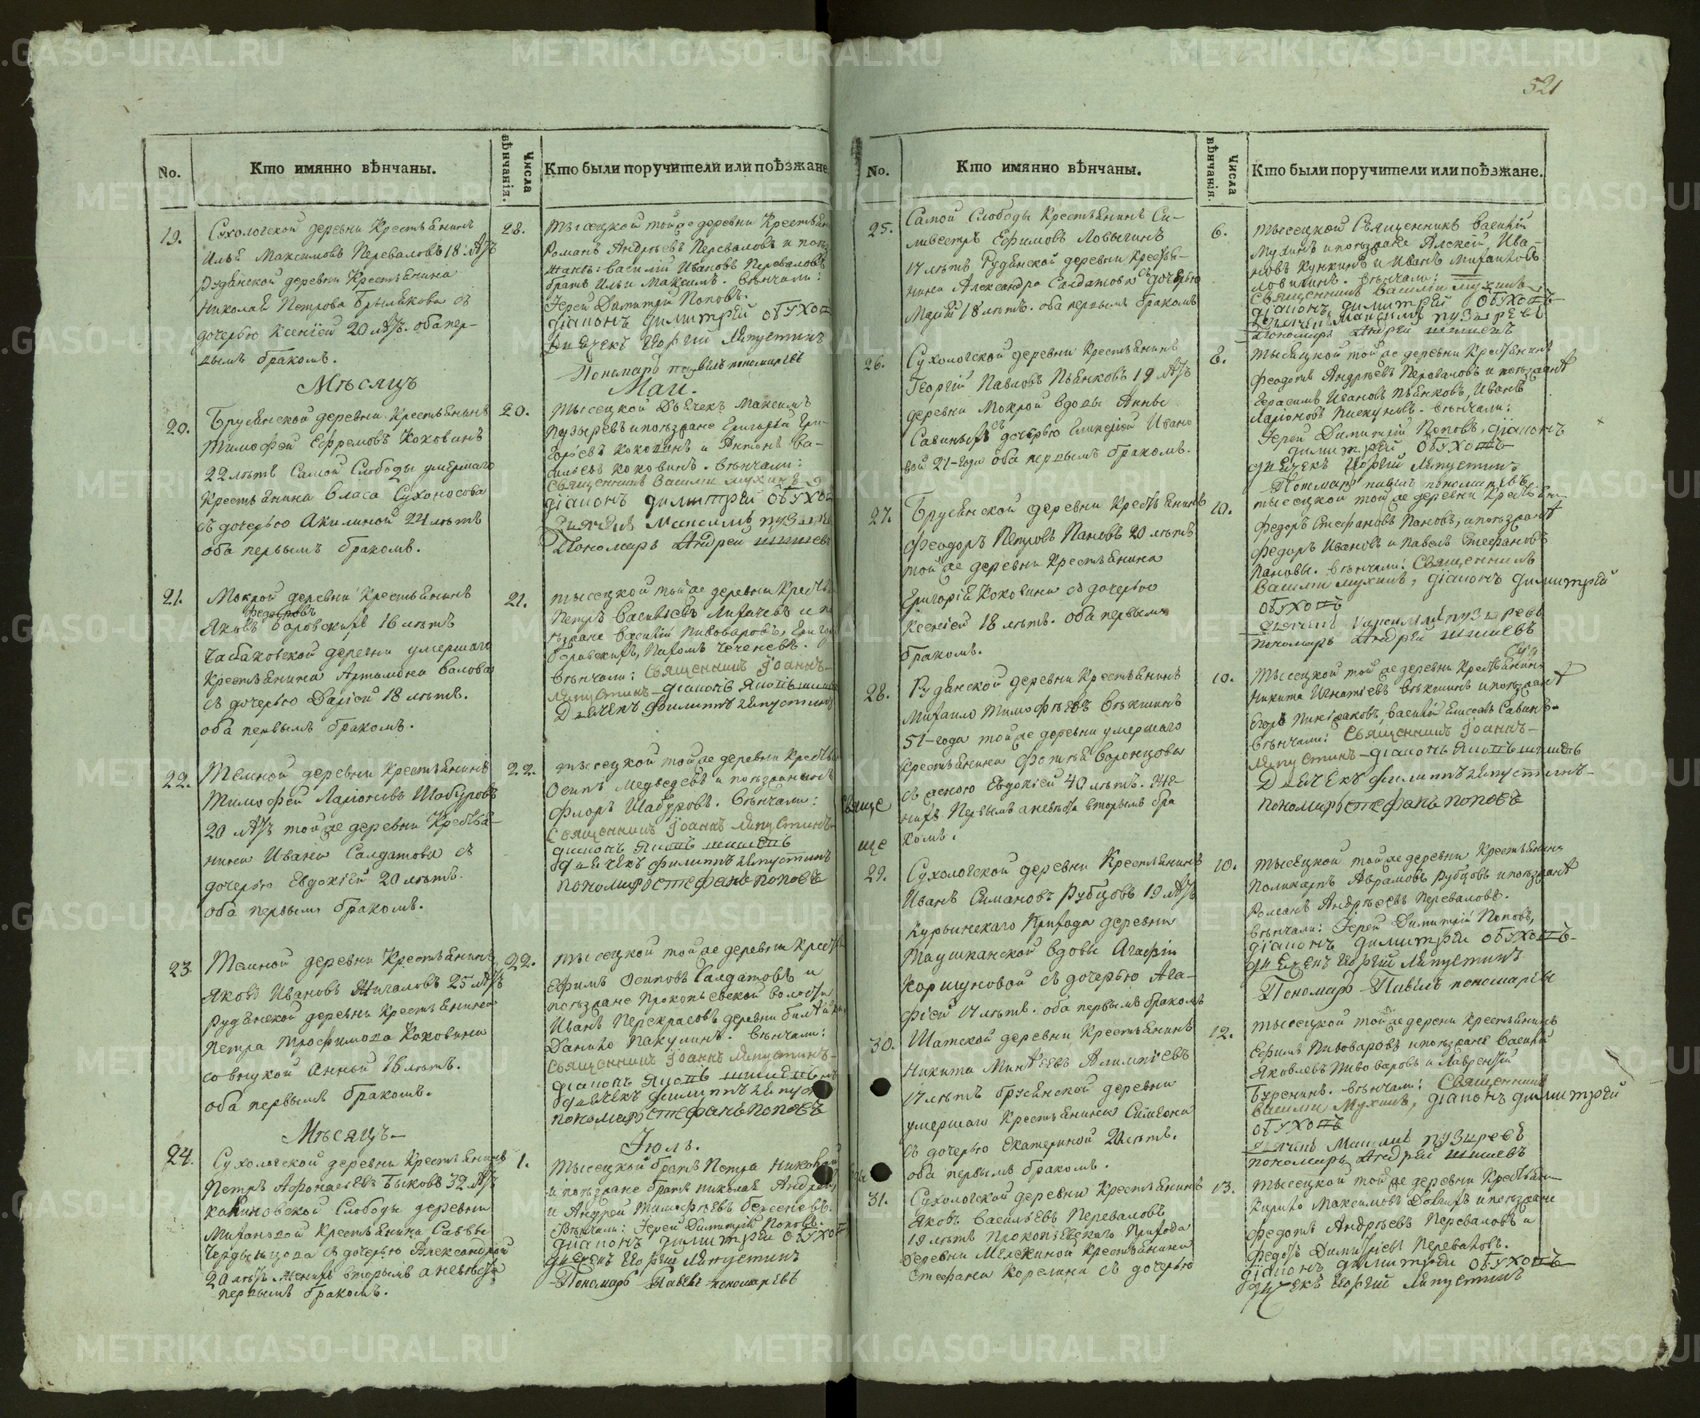 521
No.
Кто имянно вѣнчаны.
Числа вѣнчанія.
Кто были поручители или поѣзжане
19.
Сухологской деревни Крестьянинъ
Илья Максимовъ Переваловъ 18. лѣтъ
Рудянской деревни Крестьянина
Николая Петрова Брылякова съ
дочерью Ксеніей 20 лѣтъ. оба пер-
вымъ бракомъ.
28.
Тысецкой той же деревни
Романъ Андреевъ Переваловъ и
Василій Ивановъ Переваловъ
братъ Ильи Максимъ. Вѣнчали:
Іерей Димитрій Поповъ.
діаконъ Димитрій Обухов
Дьячекъ Георгій Ляпустинъ
Пономарь Павелъ пономаревъ
Мѣсяцъ
Маи.
20.
Брусянской деревни Крестьянинъ
Тимофей Ефремовъ Коковинъ
22 лѣтъ Самой Слободы умершаго
Крестьянина Власа Сухоносова
съ дочерью Акилиной 24 лѣтъ
оба первымъ бракомъ.
20.
Тысецкой Дьячекъ Максимъ
Пузыревъ и поѣзжане Григорій Гри-
горьевъ Коковинъ и Антонъ Ва-
сильевъ Коковинъ. вѣнчали:
Священникъ Василій Мухинъ
діаконъ Димитрей Обухов
Дьячекъ Максимъ Пузыре
Пономарь Андрей Шишевъ
21.
Мокрой деревни Крестьянинъ
Федоровъ
Яковъ Боровскихъ 16 лѣтъ
деревни умершаго
Крестьянина Артамона Волова
съ дочерью Даріей 18 лѣтъ.
оба первымъ бракомъ.
21.
Тысецкой той же деревни
Петръ Васильевъ Лихачевъ и по
ѣзжане Василій Пивоваровъ, Григ
Боровскихъ, Пахомъ Чеченевъ.
вѣнчали: Священникъ Іоаннъ
Ляпустинъ діаконъ
Дьячекъ Филиппъ Ляпустинъ
22.
Темной деревни Крестьянинъ
Тимофей Ларіоновъ Шабуровъ
20 лѣтъ той же деревни Крестья-
нина Ивана Салдатова съ
дочерью Евдокіей 20 лѣтъ.
оба первымъ бракомъ.
22.
Тысецкой той же деревни
Осипъ Медведевъ и поѣзжанинъ
Флоръ Шабуровъ. вѣнчали:
Священникъ Іоаннъ Ляпустинъ
діаконъ
Дьячекъ Филиппъ Ляпустинъ
пономарь Стефанъ Поповъ
23
Темной деревни Крестьянинъ
Яковъ Ивановъ Жигаловъ 25 лѣтъ
Рудянской деревни Крестьянина
Петра Трофимова Коковина
со внукой Анной 16 лѣтъ.
оба первымъ бракомъ.
22.
Тысецкой той же деревни
Ефимъ Осиповъ Салдатовъ и
поѣзжане Прокопьевской волости
Иванъ Перекрасовъ деревни
Данило Пакулинъ. Вѣнчали:
Священникъ Іоаннъ Ляпустинъ
діаконъ
Дьячекъ Филиппъ Ляпустинъ
пономарь Стефанъ Поповъ
Мѣсяцъ
Іюль.
24.
Сухологской деревни Крестьянинъ
Петръ Афонасьевъ Быковъ 32 лѣтъ
Слободы деревни
Крестьянина Саввы
съ дочерью Александрой
20 лѣтъ. Женихъ вторымъ а невѣста
первымъ бракомъ.
1.
Тысецкой братъ Петра Николай
и поѣзжане братъ Николая Андрей
и Андрей Тимофеевъ
Вѣнчали: Іерей Димитрій Поповъ.
діаконъ Димитрей Обухов
Дьячекъ Георгій Ляпустинъ
Пономарь Павелъ пономаревъ
No.
Кто имянно вѣнчаны.
Числа вѣнчанія.
Кто были поручители или поѣзжане.
25.
Самой Слободы Крестьянинъ Си-
ливестръ Ефимовъ Ловыгинъ
17 лѣтъ Рудянской деревни Крестья-
нина Александра Салдатова съ дочерью
Маріей 18 лѣтъ. оба первымъ бракомъ
6.
Тысецкой Священникъ Василій
Мухинъ и поѣзжане Алексѣй Ива-
новъ Кункинъ и Иванъ Михайловъ
Ловыгинъ. Вѣнчали:
Священникъ Василій Мухинъ
діаконъ Димитрей Обуховъ
Дьячекъ Максимъ Пузыревъ
Пономарь Андрей Шишевъ
26.
Сухологской деревни Крестьянинъ
Георгій Павловъ Пьянковъ 19 лѣтъ
деревни Мокрой вдовы Анны
Савиныхъ съ дочерью Гликеріей Ивано
вой 21-года оба первымъ бракомъ.
8.
Тысецкой той же деревни Крестьянинъ
Феодотъ Андреевъ Переваловъ и поѣзжане
Герасимъ Ивановъ Пьянковъ, Иванъ
Ларіоновъ Пискуновъ. вѣнчали:
Іерей Димитрій Поповъ, діаконъ
Димитрей Обуховъ
Дьячекъ Георгій Ляпустинъ
Пономарь Павелъ пономаревъ
27.
Брусянской деревни Крестьянинъ
Феодоръ Петровъ Пановъ 20 лѣтъ
той же деревни Крестьянина
Григорія Коковина съ дочерью
Ксеніей 18 лѣтъ. оба первымъ
бракомъ.
10.
Тысецкой той же деревни
Федоръ Стефановъ Пановъ, и поѣзжане
Федоръ Ивановъ и Павелъ Стефановъ
Пановы. вѣнчали: Священникъ
Василій Мухинъ, діаконъ Димитрей
Обуховъ
Дьячекъ Максимъ Пузыревъ
Пономарь Андрей Шишевъ
28.
Рудянской деревни Крестьянинъ
Михайло Тимофеевъ Векшинъ
51-года той же деревни умершаго
Крестьянина Фотея Воронцова
съ женою Евдокіей 40 лѣтъ. Же-
нихъ Первымъ а невѣста вторымъ бра
комъ.
10.
Тысецкой той же деревни Крестьянинъ
Никита Игнатьевъ Векшинъ и поѣзжане
Егоръ, Василій Елисеевъ Савинъ
вѣнчали: Священникъ Іоаннъ
Ляпустинъ діаконъ
Дьячекъ Филиппъ Ляпустинъ
пономарь Стефанъ Поповъ
29.
Сухологской деревни Крестьянинъ
Иванъ Симановъ Рубцовъ 19 лѣтъ
Курьинскаго Прихода деревни
Таушканской вдовы Агафіи
Коршуновой съ дочерью Ага-
фіей 17 лѣтъ. оба первымъ бракомъ
10.
Тысецкой той же деревни Крестьянинъ
Поликарпъ Абрамовъ Рубцовъ и поѣзжане
Романъ Андреевъ Переваловъ.
вѣнчали: Іерей Димитрій Поповъ,
діаконъ Димитрей Обуховъ
Дьячекъ Георгій Ляпустинъ
Пономарь Павелъ пономаревъ
30.
Шатской деревни Крестьянинъ
Никита Алимпіевъ
17 лѣтъ Брусянской деревни
умершаго Крестьянина Симеона
съ дочерью Екатериной 20 лѣтъ.
оба первымъ бракомъ.
12.
Тысецкой той же деревни Крестьянинъ
Ефимъ Пивоваровъ и поѣзжане Василій
Яковлевъ Пивоваровъ и Лаврентій
Буренинъ. вѣнчали: Священникъ
Василій Мухинъ, діаконъ Димитрей
Обуховъ
Дьячекъ Максимъ Пузыревъ
пономарь Андрей Шишевъ
31.
Сухологской деревни Крестьянинъ
Яковъ Васильевъ Переваловъ
19 лѣтъ Прокопьевскаго Прихода
деревни Мележиной Крестьянина
Стефана Корелина съ дочерью
13.
Тысецкой той же деревни
Кирило Максимовъ и поѣзжане
Федотъ Андреевъ Переваловъ и
Федоръ Димитріевъ Переваловъ.
діаконъ Димитрей Обуховъ
Дьячекъ Георгій Ляпустинъ
METRIKI.GASO-URAL.RU